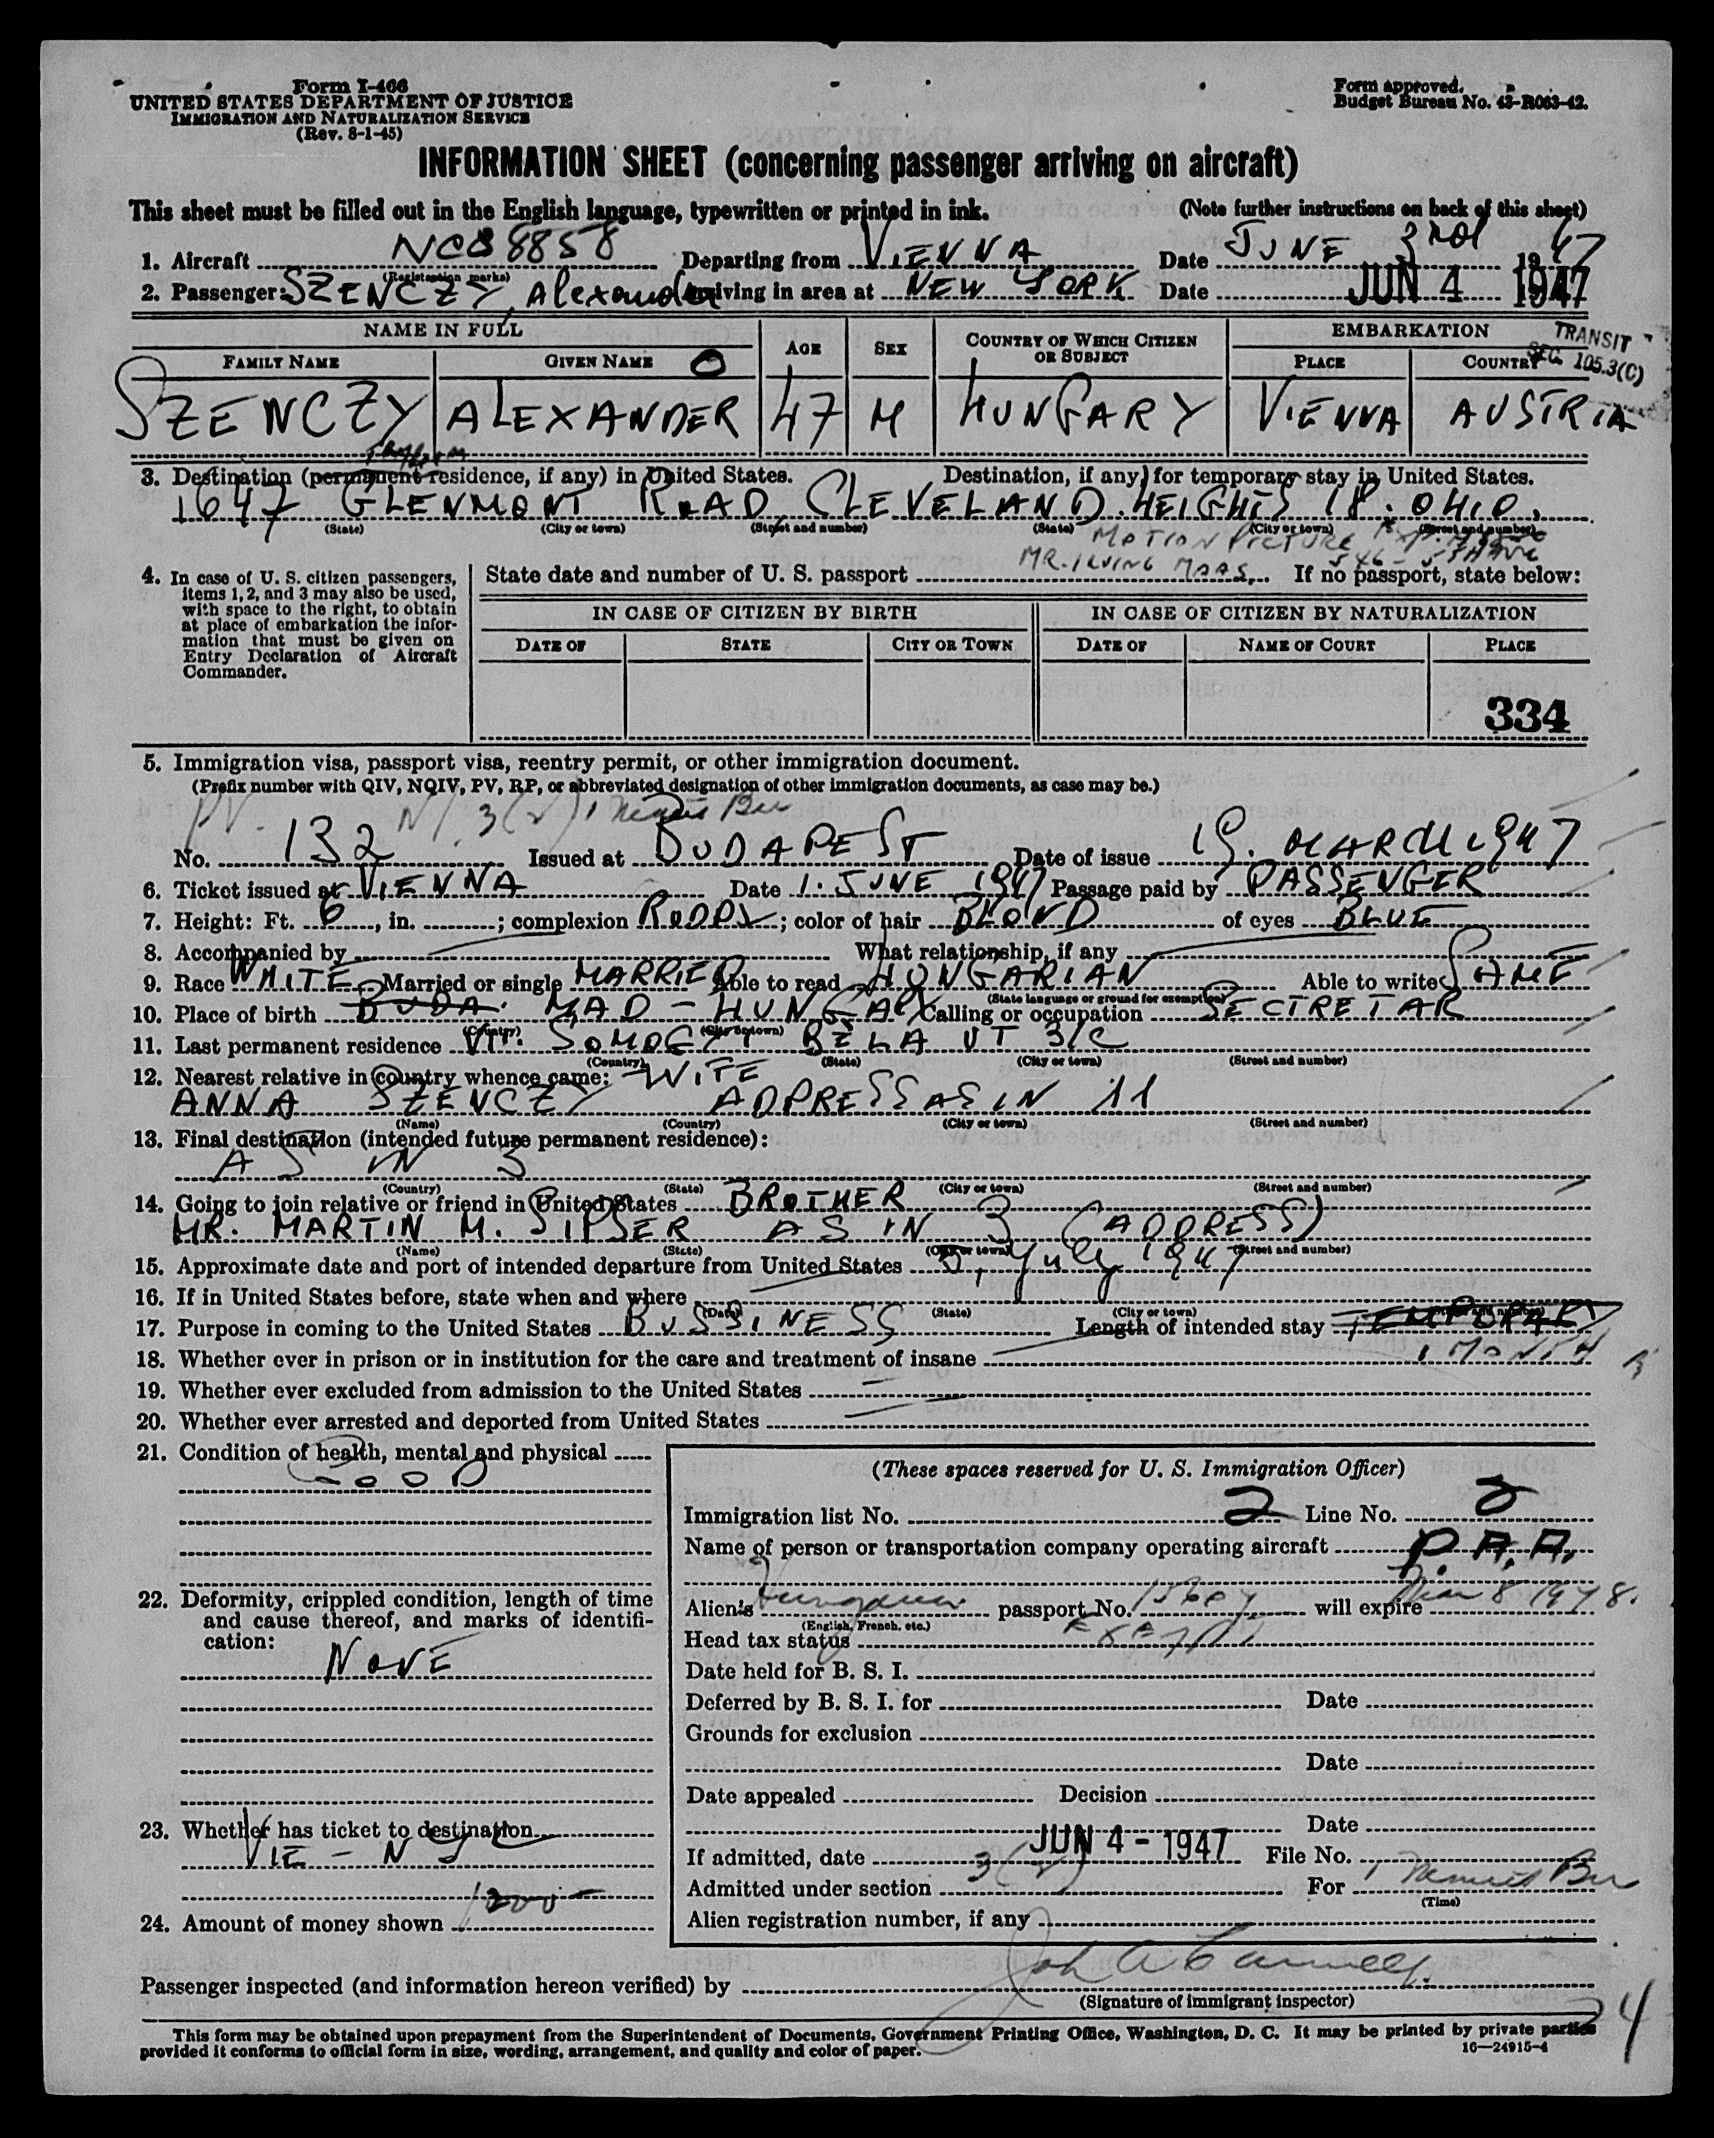 Form I-466
UNITED STATES DEPARTMENT OF JUSTICE
IMMIGRATION AND NATURALIZATION SERVICE
(Rev. 8-1-45)
Form approved.
Budget Bureau No. 43-R063-42.
INFORMATION SHEET (concerning passenger arriving on aircraft)
This sheet must be filled out in the English language, typewritten or printed in ink. (Note further instructions on back of this sheet)
1. Aircraft NC88858 Departing from VIENNA Date JUNE 3rd 1947
(Registration marks)
2. Passenger: SZENCZY, Alexander Arriving in area at NEW YORK Date JUN 4 1947
NAME IN FULL AGE SEX COUNTRY OF WHICH CITIZEN OR SUBJECT EMBARKATION
TRANSIT
SEC. 105.3(C)
FAMILY NAME GIVEN NAME O PLACE COUNTRY
SZENCZY ALEXANDER 47 M HUNGARY VIENNA AUSTRIA
3. Destination (permanent residence, if any) in United States. Destination, if any, for temporary stay in United States.
1647 GLENMONT ROAD, CLEVELAND. HEIGHTS 18. OHIO.
(State) (City or town) (Street and number) (State) (City or town) (Street and number)
MOTION PICTURE
MR. IRVING MAAS
4. In case of U. S. citizen passengers, items 1, 2, and 3 may also be used, with space to the right, to obtain at place of embarkation the information that must be given on Entry Declaration of Aircraft Commander.
State date and number of U. S. passport If no passport, state below:
IN CASE OF CITIZEN BY BIRTH IN CASE OF CITIZEN BY NATURALIZATION
DATE OF STATE CITY OR TOWN DATE OF NAME OF COURT PLACE
334
5. Immigration visa, passport visa, reentry permit, or other immigration document.
(Prefix number with QIV, NQIV, PV, RP, or abbreviated designation of other immigration documents, as case may be.)
PV. 3(2)
No. 132 Issued at BUDAPEST Date of issue 19. MARCH 1947
6. Ticket issued at VIENNA Date 1. JUNE 1947 Passage paid by PASSENGER
7. Height: Ft. 6, in. ; complexion RODDY; color of hair BLOND of eyes BLUE
8. Accompanied by What relationship, if any
9. Race WHITE Married or single MARRIED Able to read HUNGARIAN Able to write SAME
(State language or ground for exemption)
10. Place of birth BUDA. MAD - HUNGARY Calling or occupation SECTRETAR
(Country) (City or town)
11. Last permanent residence VIT. SOMOGYI BÉLA UT 3/C
(Country) (State) (City or town) (Street and number)
12. Nearest relative in country whence came: WIFE
ANNA SZENCZY ADDRESS AS IN 11
(Name) (Country) (City or town) (Street and number)
13. Final destination (intended future permanent residence):
AS IN 3
(Country) (State) (City or town) (Street and number)
14. Going to join relative or friend in United States BROTHER
MR. MARTIN M. SIPSER AS IN 3 (ADDRESS)
(Name) (State) (City or town) (Street and number)
15. Approximate date and port of intended departure from United States 5, July 1947
16. If in United States before, state when and where
(Date) (State) (City or town) (Street and number)
17. Purpose in coming to the United States BUSSINESS Length of intended stay TEMPORARY
1 MONTH
18. Whether ever in prison or in institution for the care and treatment of insane
19. Whether ever excluded from admission to the United States
20. Whether ever arrested and deported from United States
21. Condition of health, mental and physical
GOOD
22. Deformity, crippled condition, length of time and cause thereof, and marks of identification:
NONE
23. Whether has ticket to destination
VIE - NYC
24. Amount of money shown 1200
(These spaces reserved for U. S. Immigration Officer)
Immigration list No. 2 Line No. 2
Name of person or transportation company operating aircraft P. A. A.
Alien's Hungarian passport No. will expire Mar 8 1948.
(English, French, etc.)
Head tax status EXEMPT
Date held for B. S. I.
Deferred by B. S. I. for Date
Grounds for exclusion
Date
Date appealed Decision
Date
If admitted, date JUN 4 - 1947 File No.
Admitted under section 3(2) For
(Time)
Alien registration number, if any
Passenger inspected (and information hereon verified) by
(Signature of immigrant inspector)
24
This form may be obtained upon prepayment from the Superintendent of Documents, Government Printing Office, Washington, D. C. It may be printed by private parties
provided it conforms to official form in size, wording, arrangement, and quality and color of paper.
16—24915-4